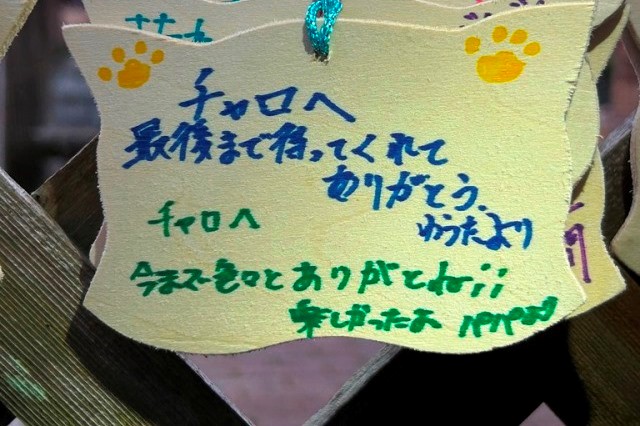 チャロへ
最後まで待ってくれて
ありがとう.
ゆうたより
チャロへ
今まで色々とありがとね!!
楽しかったよ パパより